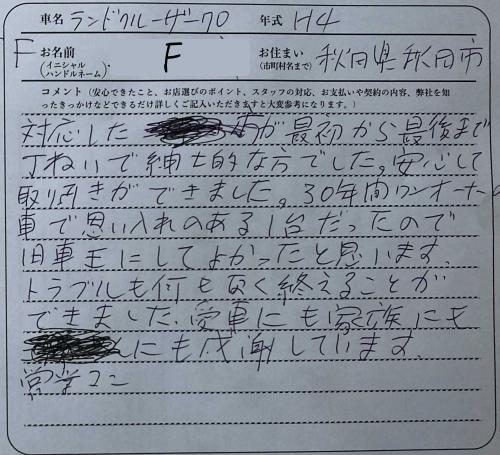 車名 ランドクルーザー70 年式 H4
F お名前 F お住まい 秋田県秋田市
(イニシャル ハンドルネーム) (市町村名まで)
コメント (安心できたこと、お店選びのポイント、スタッフの対応、お支払いや契約の内容、弊社を知
ったきっかけなどできるだけ詳しくご記入いただきますと大変参考になります。)
対応した 方が最初から最後まで
丁ねいで紳士的な方でした。安心して
取り引きができました。30年間ワンオーナーの
車で思い入れのある1台だったので
旧車王にしてよかったと思います。
トラブルも何もなく終えることが
できました。愛車にも家族にも
にも感謝しています。